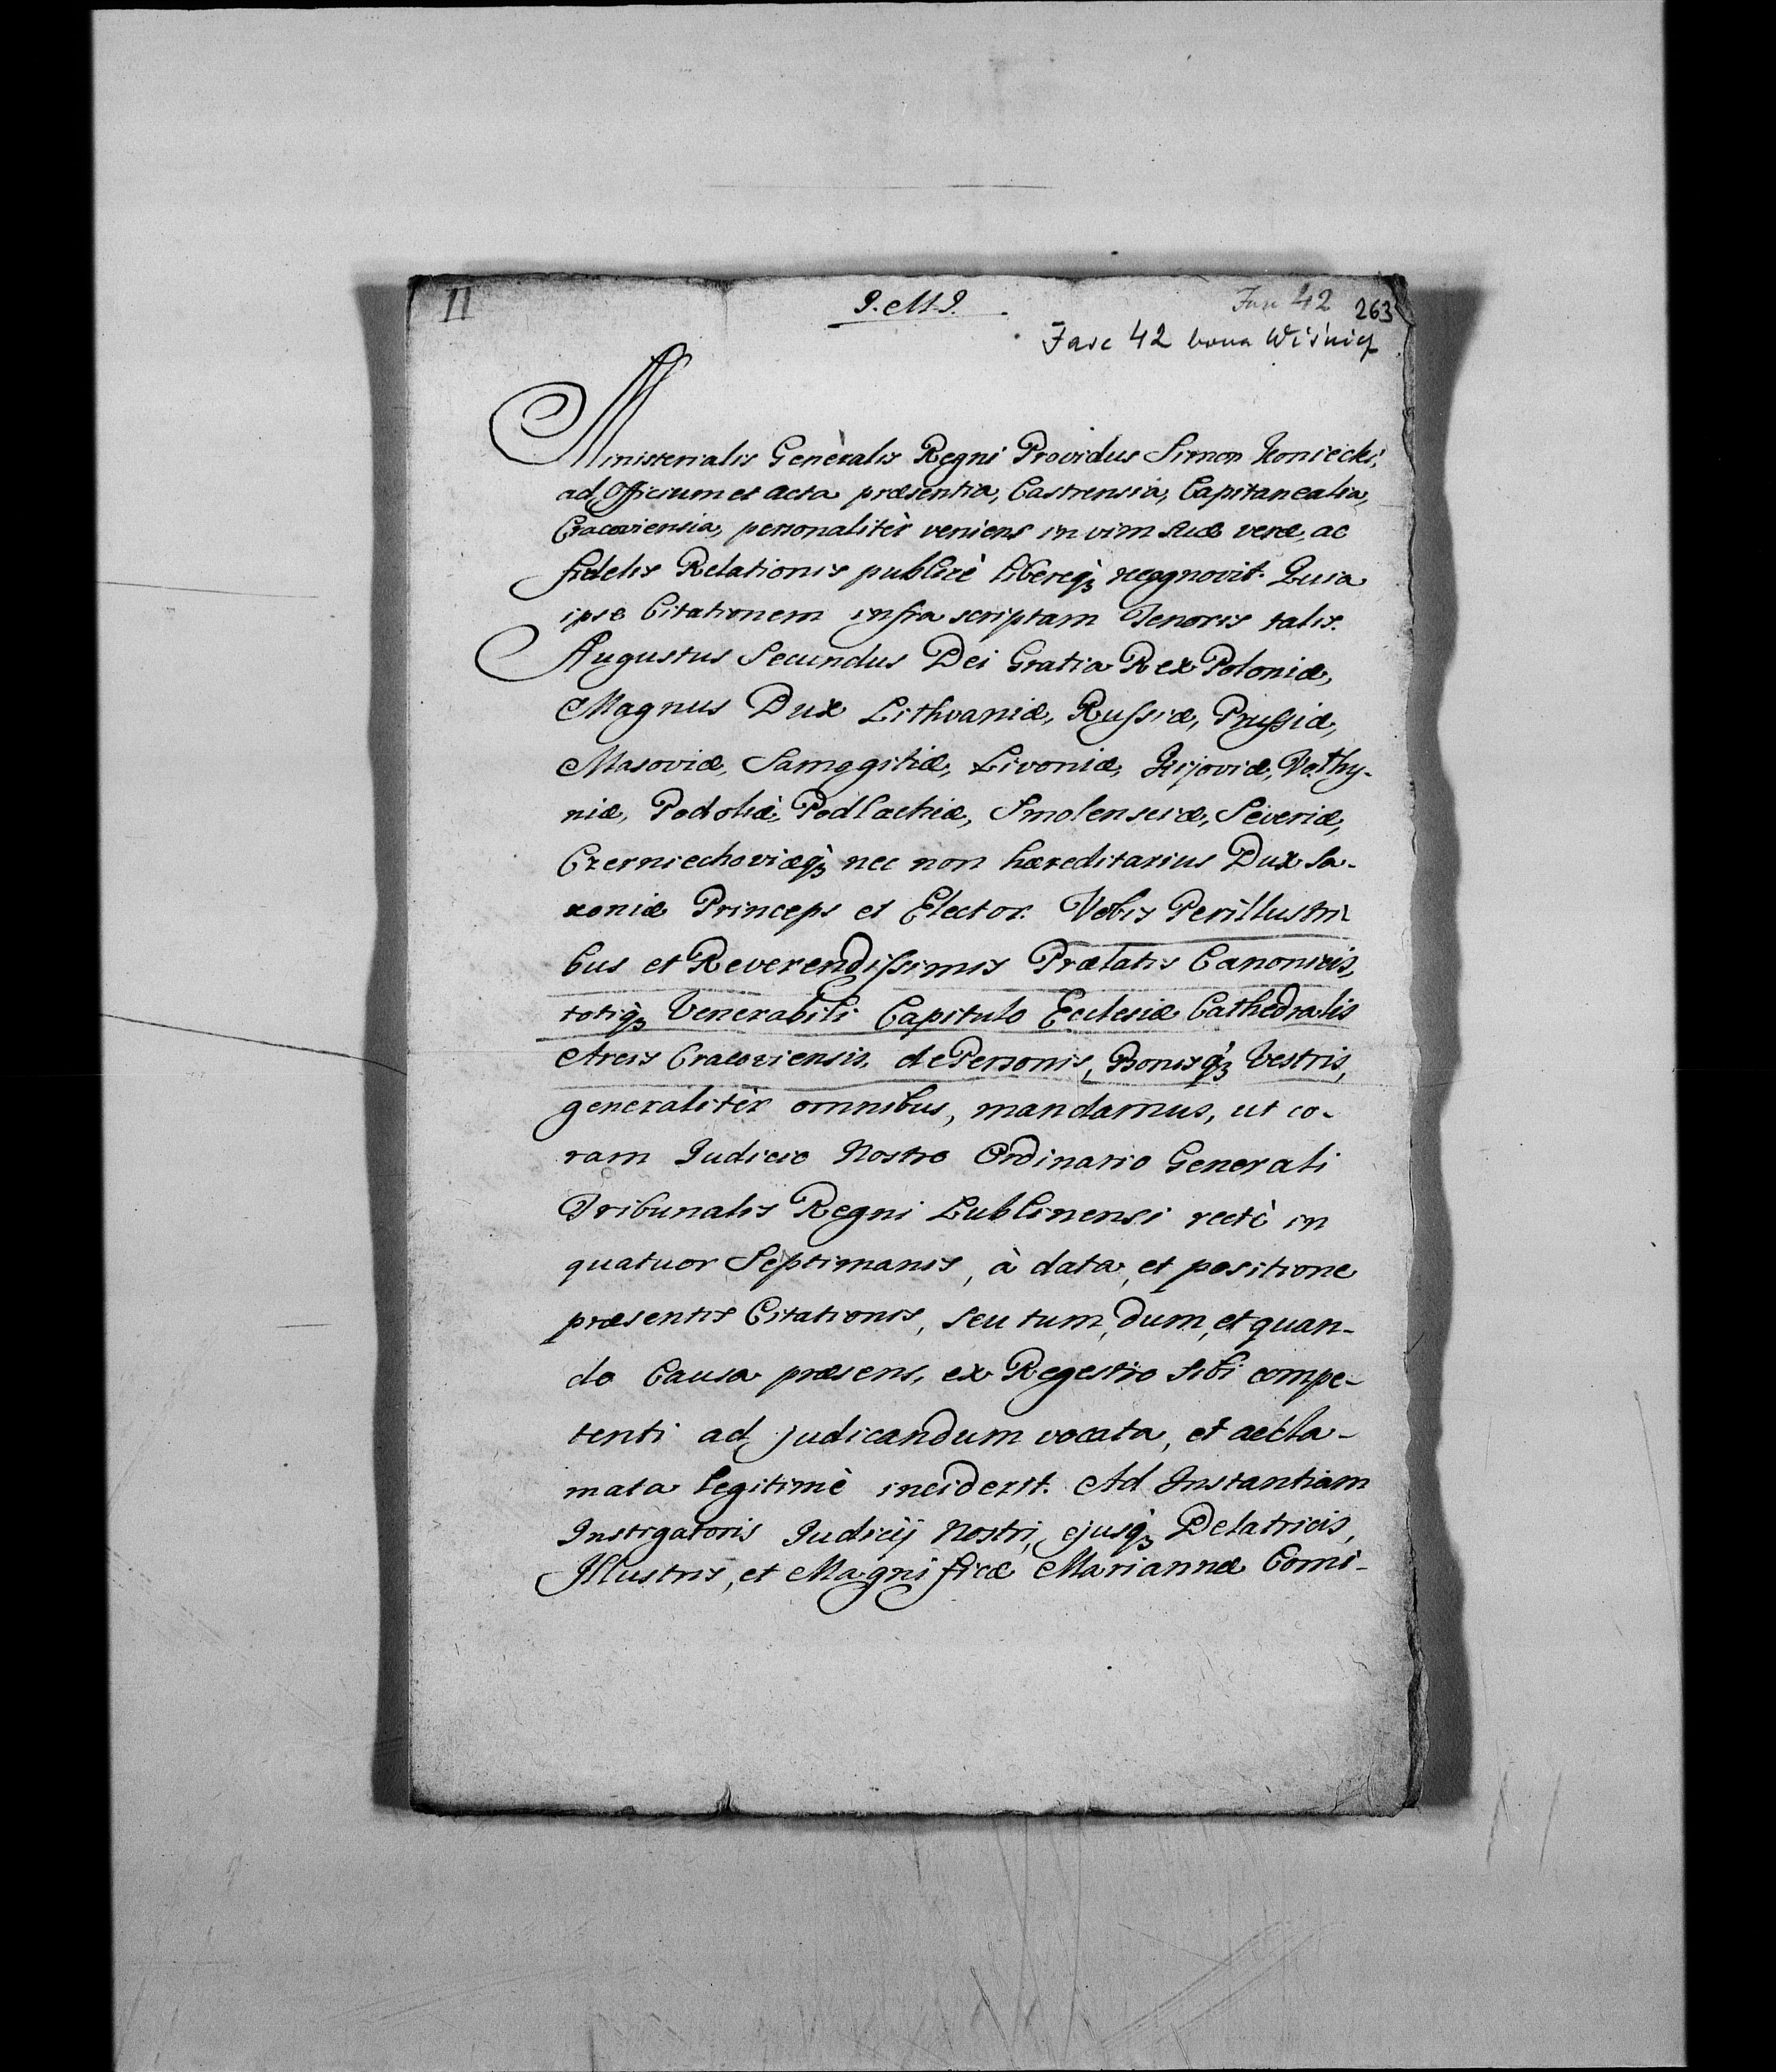 11
J. M. J.
Fasc 42
263
Fasc 42 bona Wiśnicz
Ministerialis Generàlis Regni Providus Simon Koniecki,
ad Officium et Acta præsentia, Castrensia, Capitanealia,
Cracoviensia, personalitèr veniens in vim suæ veræ, ac
fidelis Relationis publicè libereq3 recognovit. Quia
ipse Citationem infra scriptam Tenoris talis.
Augustus Secundus Dei Gratia Rex Poloniæ,
Magnus Dux Lithvaniæ, Russiæ, Prussiæ,
Masoviæ, Samogitiæ, Livoniæ, Kijoviæ, Volhy-
niæ, Podoliæ, Podlachiæ, Smolensciæ, Severiæ,
Czerniechoviæq3 nec non hæreditarius Dux Sa-
xoniæ Princeps et Elector. Vobis Perillustri
bus et Reverendissimis Prælatis Canonicis,
totiq3 Venerabili Capitulo Ecclesiæ Cathedralis
Arcis Cracoviensis, de Personis, Bonisq3 Vestris,
generalitèr omnibus, mandamus, ut co-
ram Judicio Nostro Ordinario Generali
Tribunalis Regni Lublinensi rectè in
quatuor Septimanis, à data, et positione
præsentis Citationis, seu tum, dum, et quan-
do Causa præsens, ex Regestro sibi compe-
tenti ad judicandum vocata, et accla-
mata legitimè inciderit. Ad Instantiam
Instigatoris Judicij Nostri, ejusq3 Delatricis,
Illustris, et Magnificæ Mariannæ Comi-